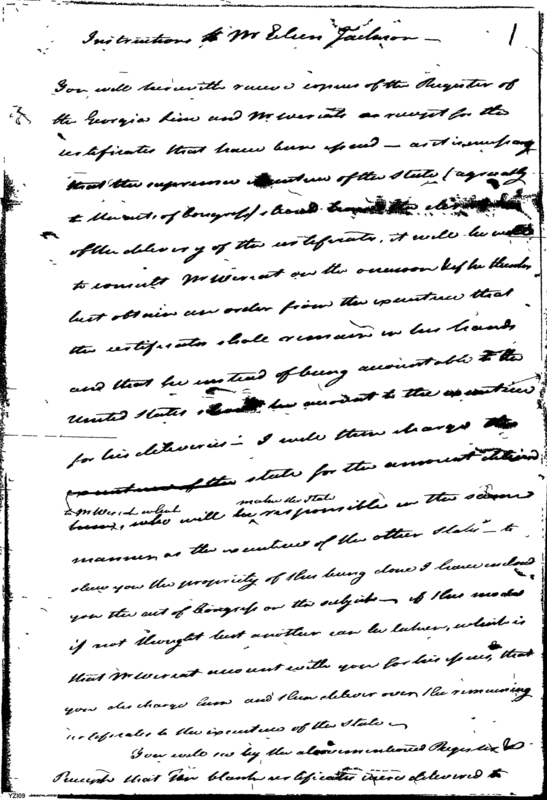 Instructions to Mr Eben Jackson —
1
You will herewith receive copies of the Register of
the Georgia Line and Mr Wereats receipt for the
certificates that have been issued — as it is necessary
that the supreme executive of the State (agreeably
to the act of Congress) should
of the delivery of the certificates, it will be well
to consult Mr Wereat on the occasion & if he thinks
best obtain an order from the executive that
the certificates shall remain in his hands
and that he instead of being accountable to the
United States he account to the executive
for his deliveries — I will then charge the
executive of the state for the amount delivered
to Mr Wereat which make the State
him, who will be responsible in the same
manner as the executives of the other States — to
shew you the propriety of this being done I have inclosed
you the act of Congress on the subject — if this mode
is not thought best another can be taken, which is
that Mr Wereat account with you for his issues, that
you discharge him and then deliver over the remaining
certificates to the executive of the State —
You will see by the abovementioned Register &
Receipts that blank certificates were delivered to
YZI09